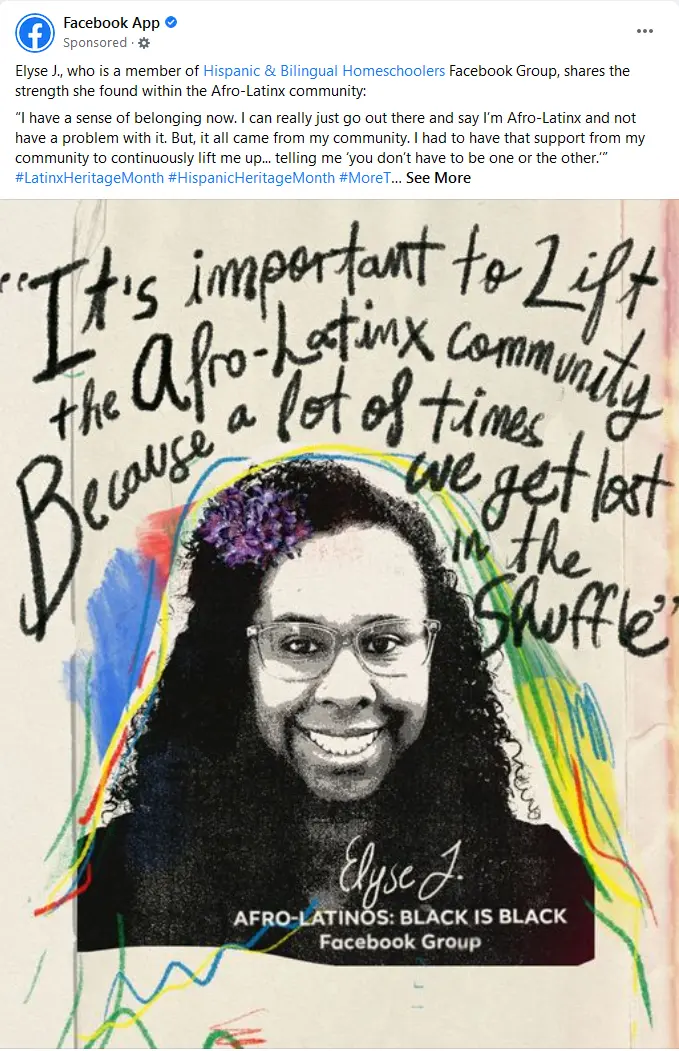 Facebook App
Sponsored ·
Elyse J., who is a member of Hispanic & Bilingual Homeschoolers Facebook Group, shares the
strength she found within the Afro-Latinx community:
“I have a sense of belonging now. I can really just go out there and say I’m Afro-Latinx and not
have a problem with it. But, it all came from my community. I had to have that support from my
community to continuously lift me up... telling me ‘you don’t have to be one or the other.’”
#LatinxHeritageMonth #HispanicHeritageMonth #MoreT... See More
“It's important to Lift
the Afro-Latinx community
Because a lot of times
we get lost
in the
Shuffle”
Elyse J.
AFRO-LATINOS: BLACK IS BLACK
Facebook Group